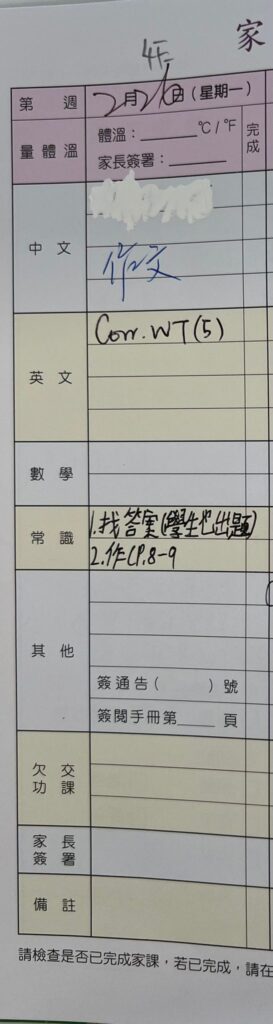 家
第 週 2月26日(星期一)
量體溫 體溫：______℃/℉ 完成
家長簽署：______
中文
作文
英文 Corr. WT(5)
數學
常識 1.找答案(學生也出題)
2.作(P.8-9
其他
簽通告( )號
簽閱手冊第____頁
欠交功課
家長簽署
備註
請檢查是否已完成家課，若已完成，請在